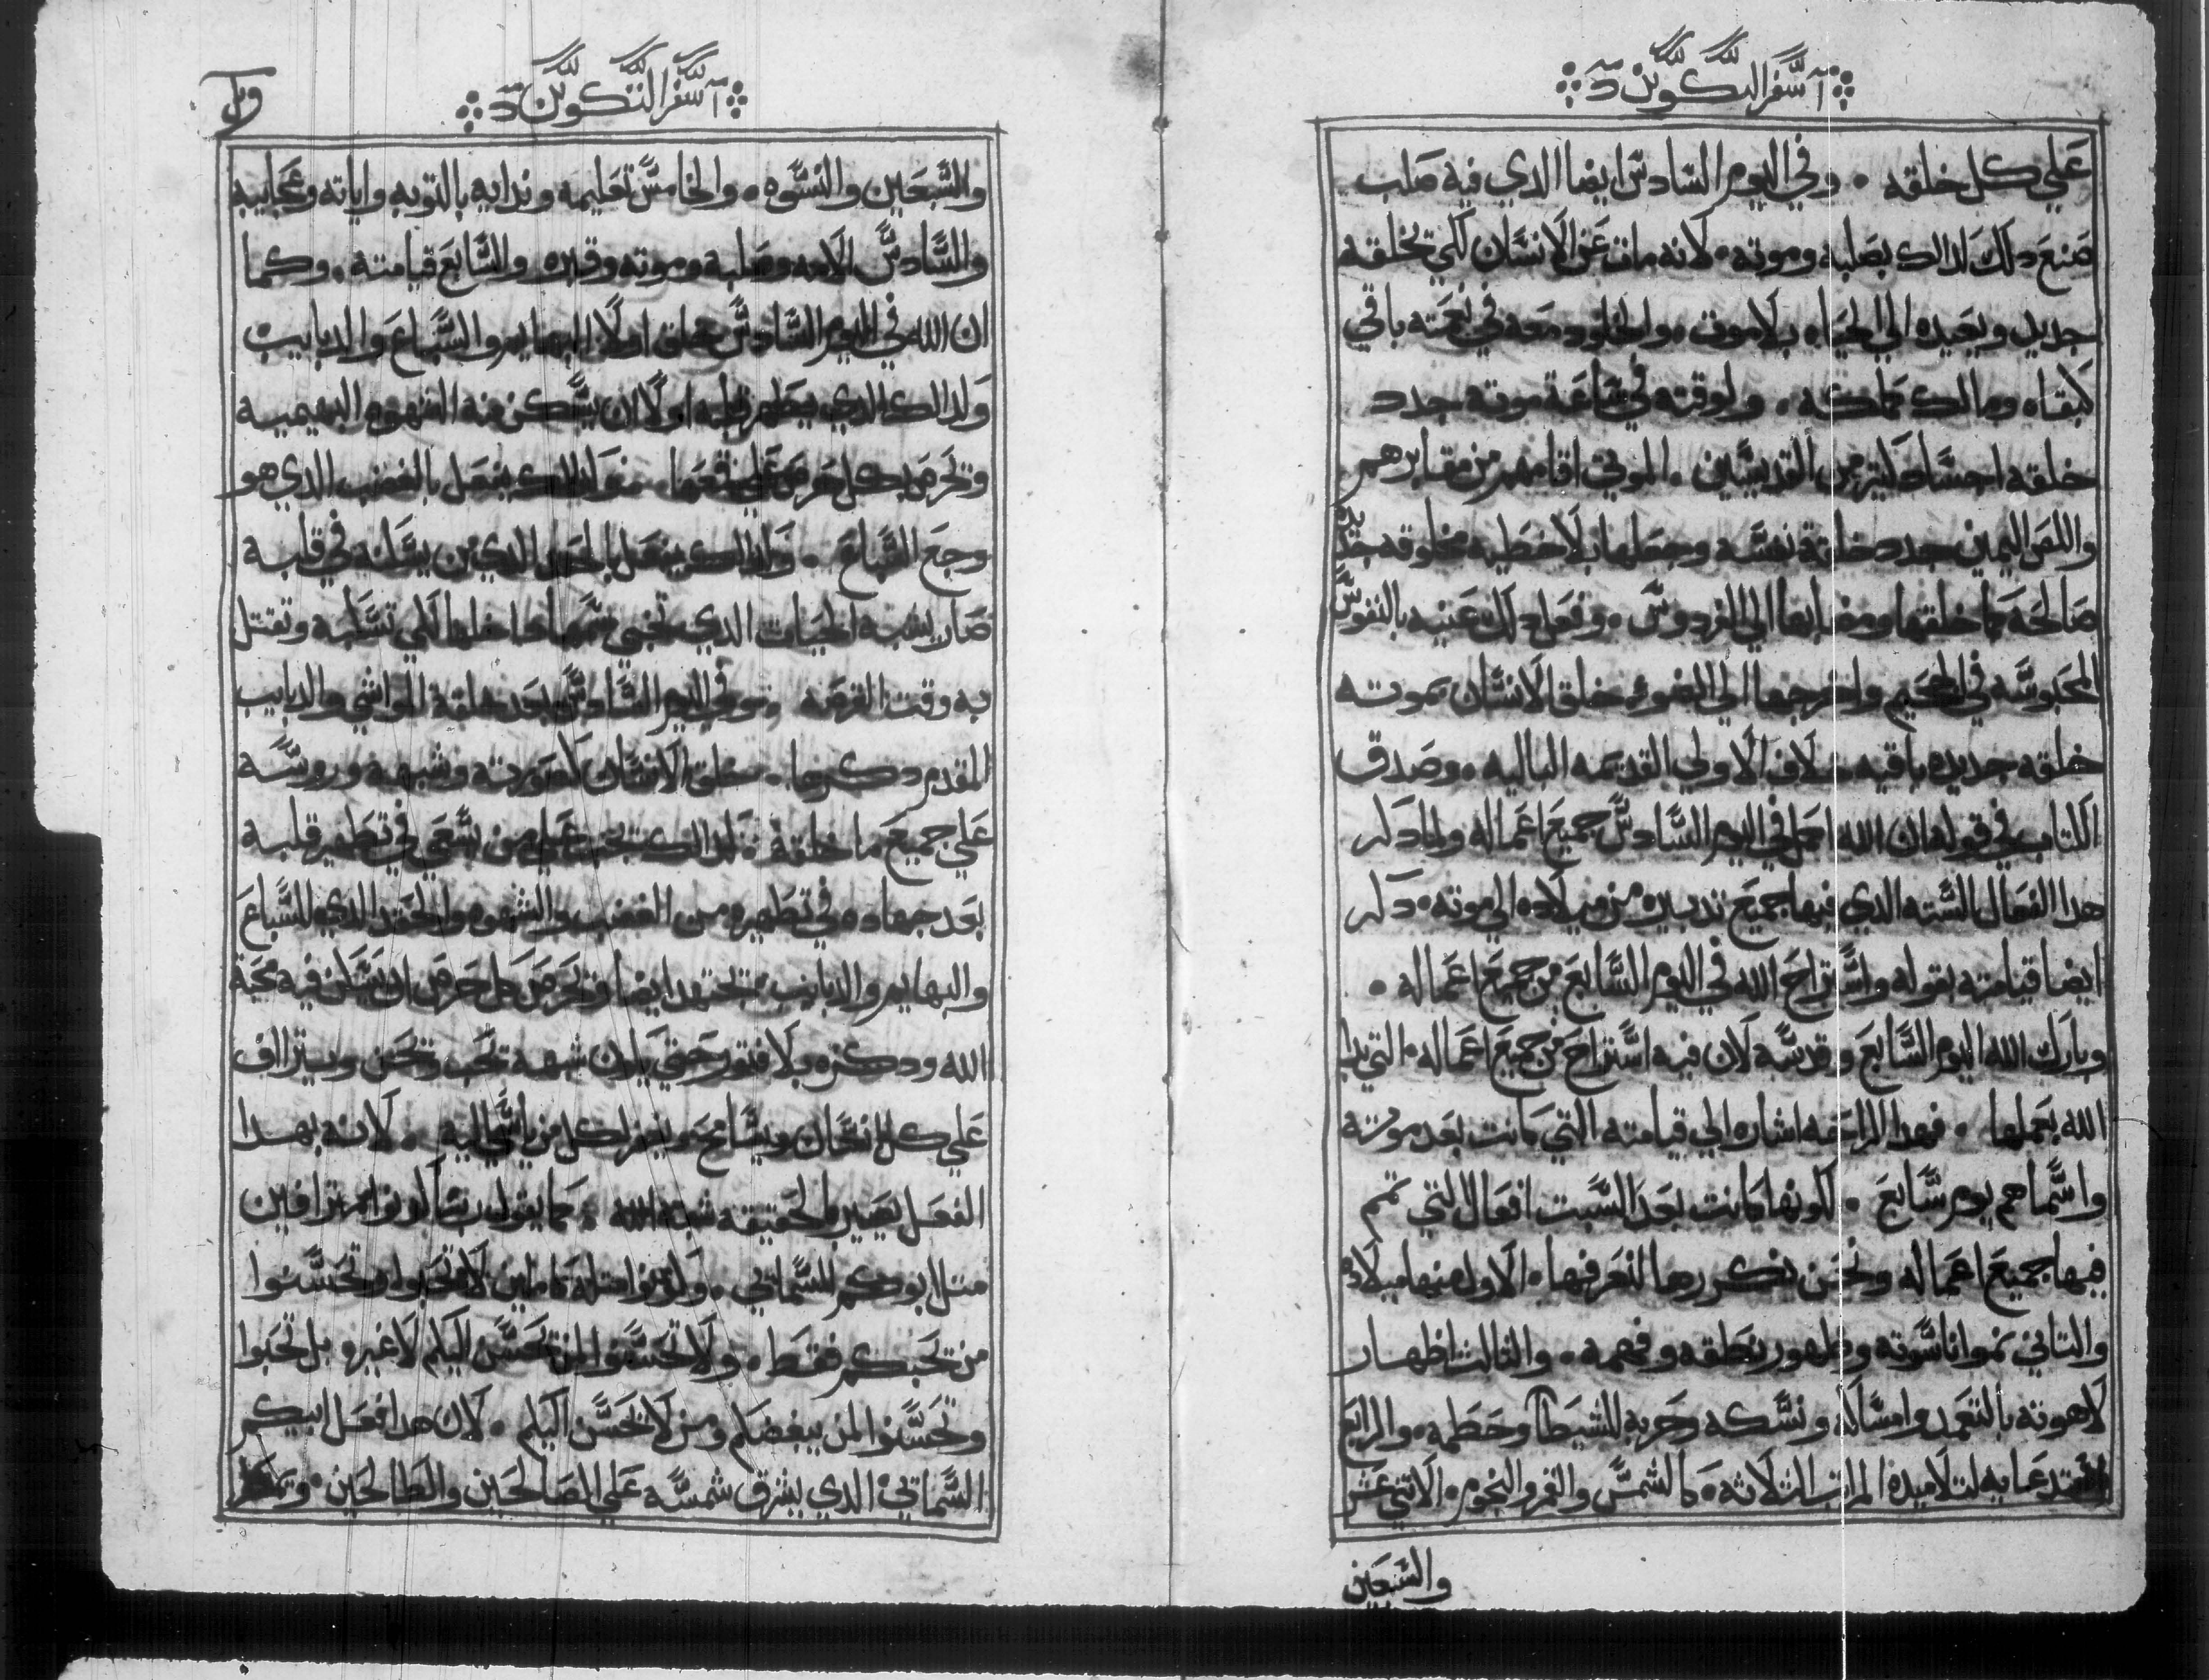 سفر التكوين
علي كل خلقه ٠ وفي اليوم السادس ايضا الدي فيه صلب
صنع دلك لدالك بصلبه وموته ٠ لانه مات عن الانسان لكي تخلقه
جديد ويعيده الي الحياه بلا موت ٠ والخلود معه في نعمته باقي
كبقاه ومالك كملكه ٠ ولوقته في ساعة موته جدد
خلقه اجساد كتير من القديسين ٠ الموتي اقامهم من مقابرهم
واللص اليمين جدد خلقة نفسه وجعلها بلا خطيه مخلوقه جديده
صالحه كما خلقها ومضا بها الي الفردوس ٠ وفعل دلك عنيه بالنفوس
المحبوسه في الجحيم واخرجها الي الضوء خلق الانسان بموته
خلقه جديده باقيه خلاف الاولي القديمه الباليه ٠ وصدق
الكتاب في قوله ان الله اكمل في اليوم السادس جميع اعماله ولما دكر
هدا الفعال السته الدي فيها جميع تدبيره من ميلاده الي موته ٠ دكر
ايضا قيامته بقوله واستراح الله في اليوم السابع من جميع اعماله ٠
وبارك الله اليوم السابع وقدسه لان فيه استراح من جميع اعماله ٠ التي بدا
الله بعملها ٠ فهدا الراحه اشاره الي قيامته التي كانت بعد موته
واسماهم يوم سابع ٠ لكونها كانت بعد السبت افعال التي تمم
فيها جميع اعماله ونحن نكررها لنعرفها ٠ الاول منها ميلاده
والتاني نموا ناسوته وظهور نطقه وفهمه ٠ والتالت اظهار
لاهوته بالتعمد وامساكه ونسكه وحربه للشيطان وحطمه ٠ والرابع
استدعايه لتلاميده المراتب التلاته ٠ كالشمس والقمر والنجوم ٠ الاتني عشر
والسبعين
سفر التكوين
والسبعين والنسوه ٠ والخامس تعليمه وندايه بالتوبه واياته وعجايبه
والسادس الامه وصلبه وموته وقبره والسابع قيامته ٠ وكما
ان الله في اليوم السادس خلق اولا البهايم والسباع والدبابيب
ولدالك الدي يطهر قلبه اولا ان يسكن منه الشهوه البهيميه
وتحرص بكل حرص علي قمعها ٠ نموا لدلك يفعل بالغضب الدي هو
وجع السباع ٠ ولدالك يفعل بالحقد الدي من يسكنه في قلبه
صار يشبه الحيات الدي تخبي سمها داخلها لكي تسلبه وتقتل
به وقت الفرصه وفي اليوم السادس بعد خلقة المواشي والدبابيب
المقدم دكرها ٠ خلق الانسان كصورته وشبهه وروسه
علي جميع ما خلقه ٠ لدالك تجب علي من يسعي في تطهير قلبه
بعد جهاده في تطهيره من الغضب والشهوه والحقد الدي للسباع
والبهايم والدبابيب تجتهد ايضا وتحرص كل حرص ان يسكن فيه محبة
الله ودكره بلا فتور حتي يكون شبهه تحب وتحنن ويتراف
علي كل انسان ويسامح ويغفر لكل من ياسي اليه ٠ لانه بهدا
الفعل يصير بالحقيقه شبه الله ٠ كما يقول ربنا كونوا مترافين
متل ابوكم السماتي ٠ وكونوا متله كاملين لا تحبوا وتحسنوا
من تحبكم فقط ٠ ولا تحسنوا لمن تحسن اليكم لا غير ٠ بل تحبوا
وتحسنوا لمن يبغضكم ومن لا تحسن اليكم ٠ لان هدا فعل ابيكم
السماتي الدي يشرق شمسه علي الصالحين والطالحين ٠ وتمطر